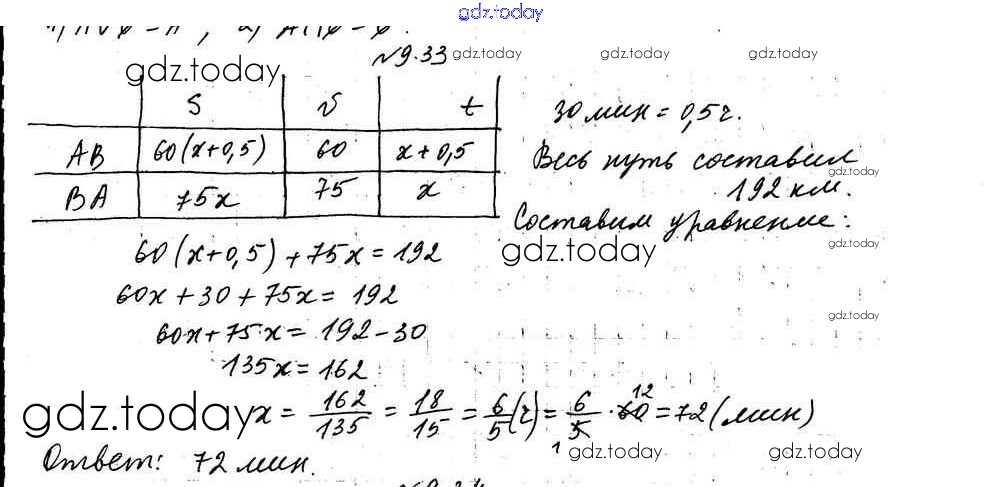 gdz.today
№9.33 gdz.today gdz.today
gdz.today
S v t
AB 60(x+0,5) 60 x+0,5
BA 75x 75 x
30 мин = 0,5ч.
Весь путь составил
gdz.today
192 км.
Составим уравнение:
gdz.today
gdz.today
60(x+0,5)+75x=192
60x+30+75x=192
gdz.today
60x+75x=192-30
135x=162
gdz.today x = 162/135 = 18/15 = 6/5 (ч) = 6/5 · 60 = 72 (мин)
12
1
gdz.today gdz.today
Ответ: 72 мин.